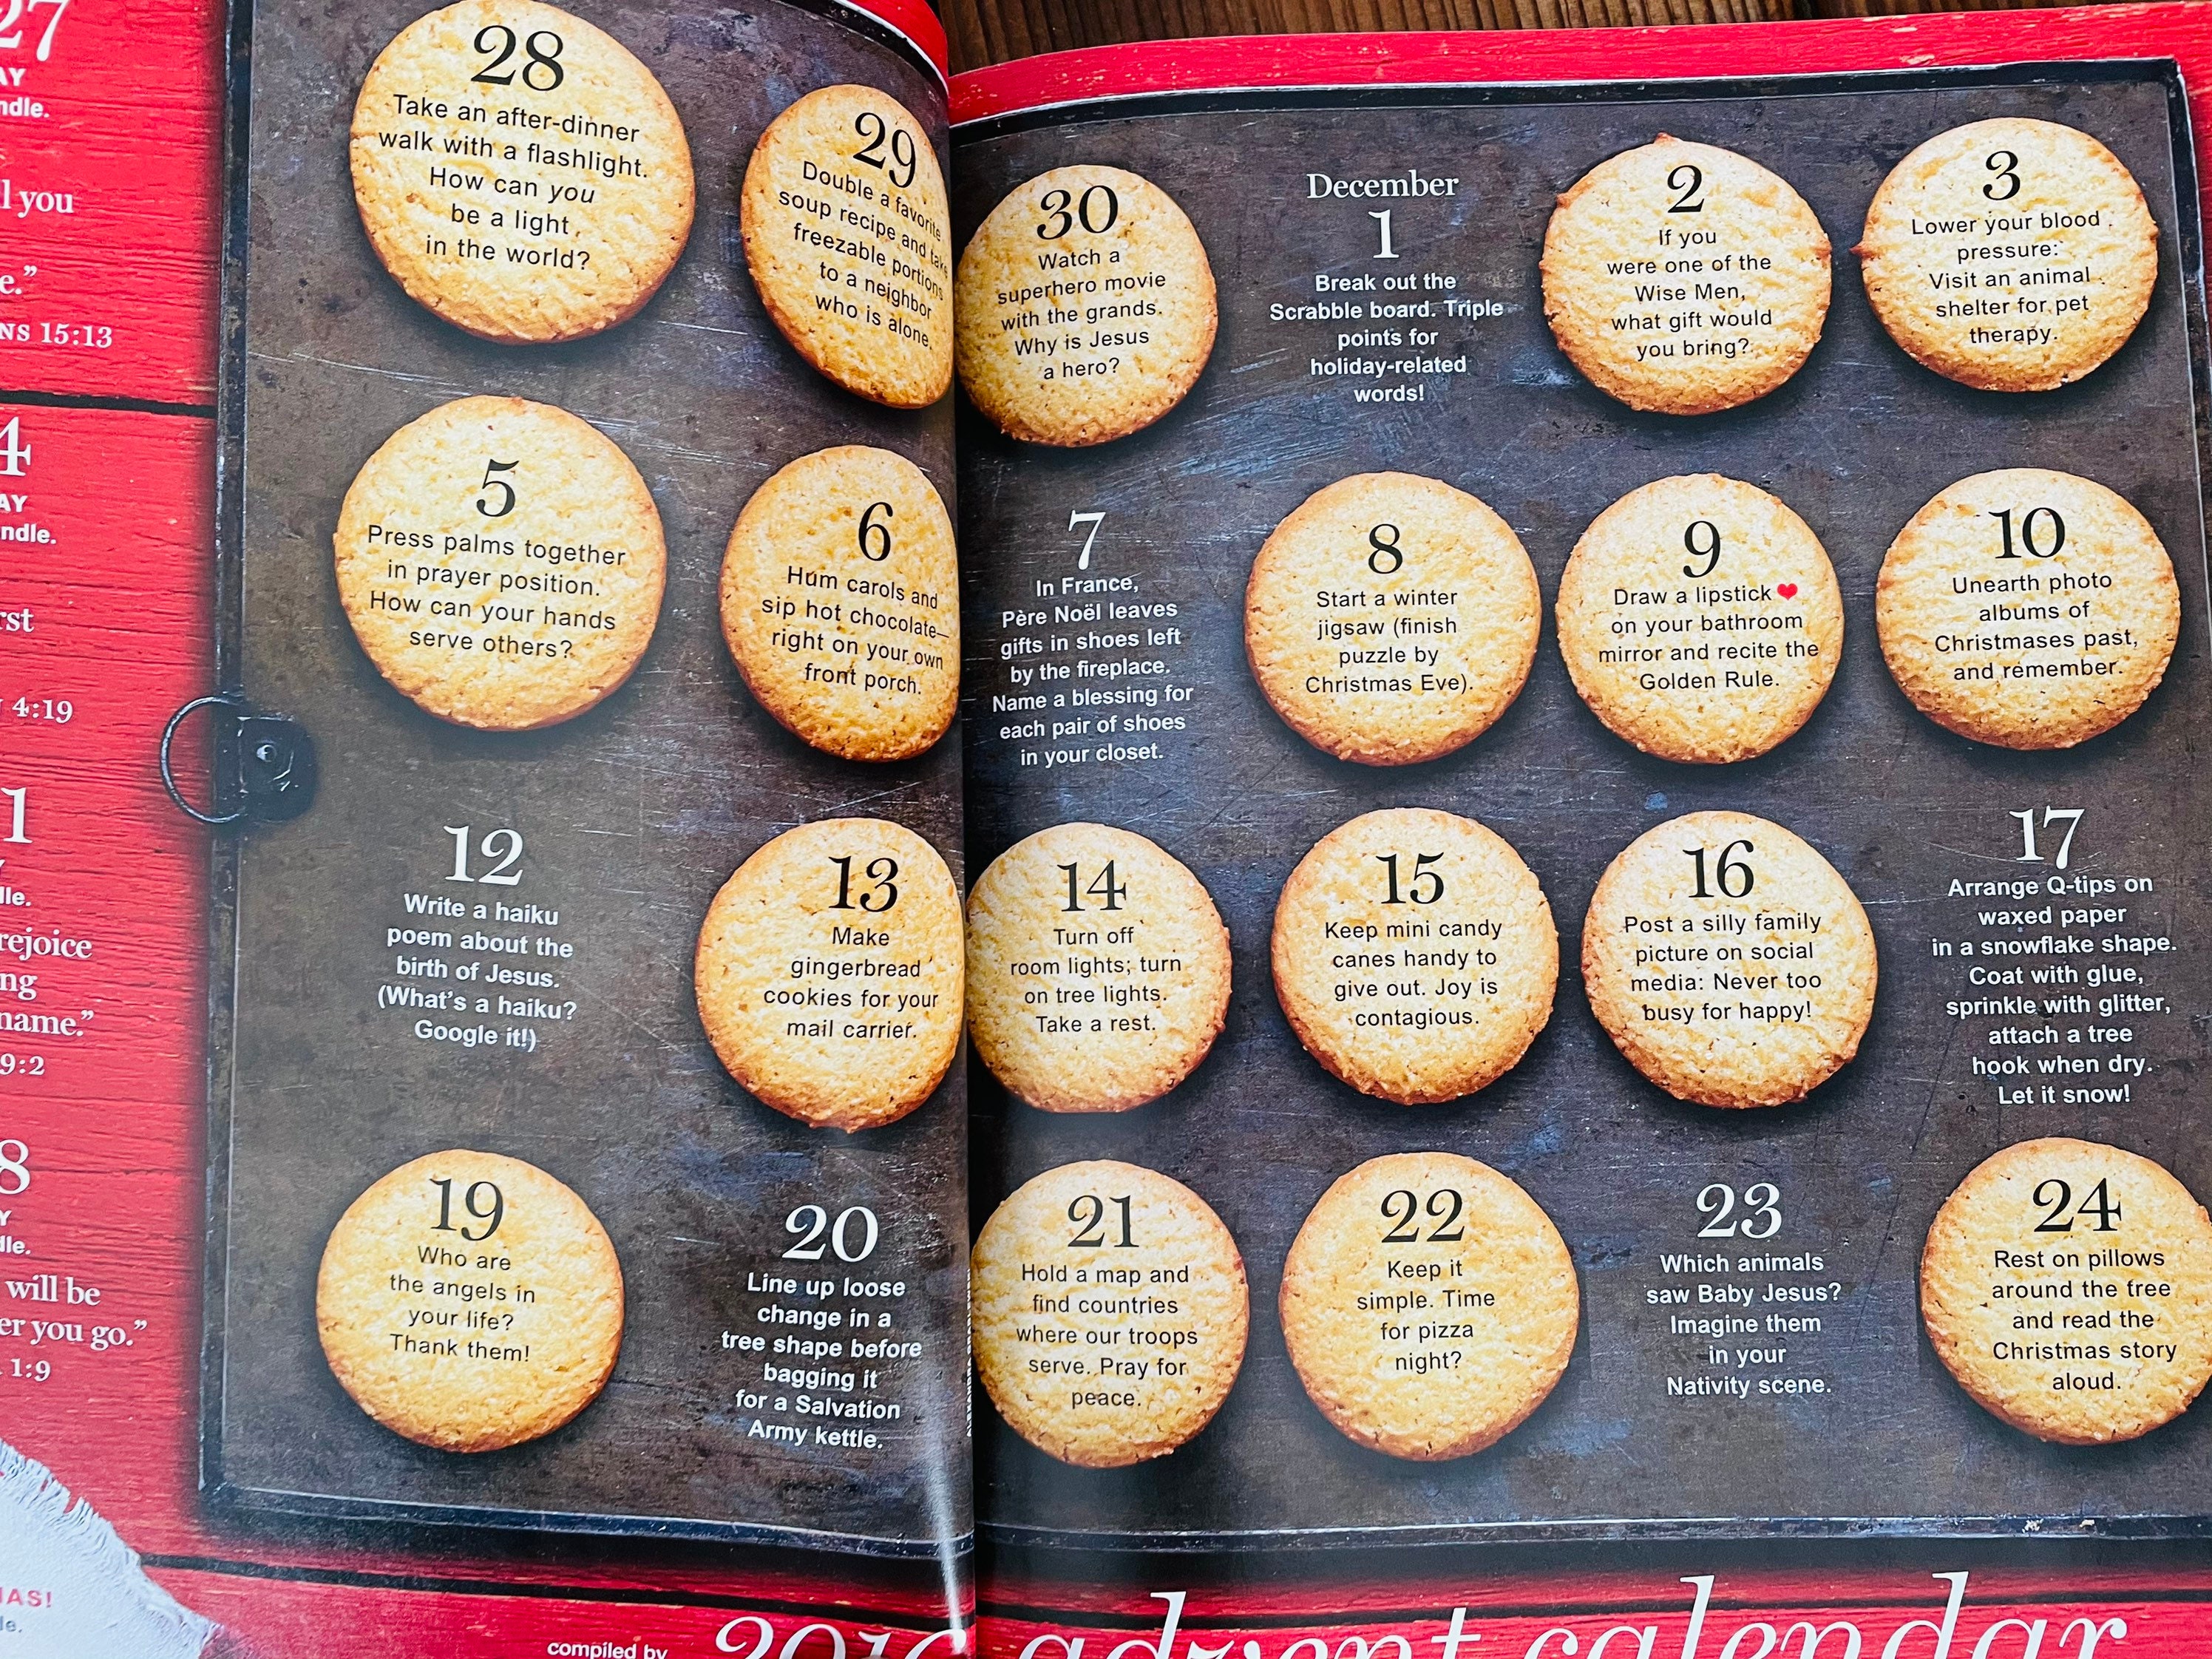 27
AY
ndle.
l you
e."
NS 15:13
4
AY
ndle.
rst
4:19
1
lle.
rejoice
ng
name."
9:2
8
Y
lle.
will be
er you go."
1:9
MAS!
le.
28
Take an after-dinner
walk with a flashlight.
How can you
be a light
in the world?
29
Double a favorite
soup recipe and take
freezable portions
to a neighbor
who is alone.
30
Watch a
superhero movie
with the grands.
Why is Jesus
a hero?
December
1
Break out the
Scrabble board. Triple
points for
holiday-related
words!
2
If you
were one of the
Wise Men,
what gift would
you bring?
3
Lower your blood
pressure:
Visit an animal
shelter for pet
therapy.
5
Press palms together
in prayer position.
How can your hands
serve others?
6
Hum carols and
sip hot chocolate—
right on your own
front porch.
7
In France,
Père Noël leaves
gifts in shoes left
by the fireplace.
Name a blessing for
each pair of shoes
in your closet.
8
Start a winter
jigsaw (finish
puzzle by
Christmas Eve).
9
Draw a lipstick ❤
on your bathroom
mirror and recite the
Golden Rule.
10
Unearth photo
albums of
Christmases past,
and remember.
12
Write a haiku
poem about the
birth of Jesus.
(What's a haiku?
Google it!)
13
Make
gingerbread
cookies for your
mail carrier.
14
Turn off
room lights; turn
on tree lights.
Take a rest.
15
Keep mini candy
canes handy to
give out. Joy is
contagious.
16
Post a silly family
picture on social
media: Never too
busy for happy!
17
Arrange Q-tips on
waxed paper
in a snowflake shape.
Coat with glue,
sprinkle with glitter,
attach a tree
hook when dry.
Let it snow!
19
Who are
the angels in
your life?
Thank them!
20
Line up loose
change in a
tree shape before
bagging it
for a Salvation
Army kettle.
21
Hold a map and
find countries
where our troops
serve. Pray for
peace.
22
Keep it
simple. Time
for pizza
night?
23
Which animals
saw Baby Jesus?
Imagine them
in your
Nativity scene.
24
Rest on pillows
around the tree
and read the
Christmas story
aloud.
compiled by
2016 advent calendar